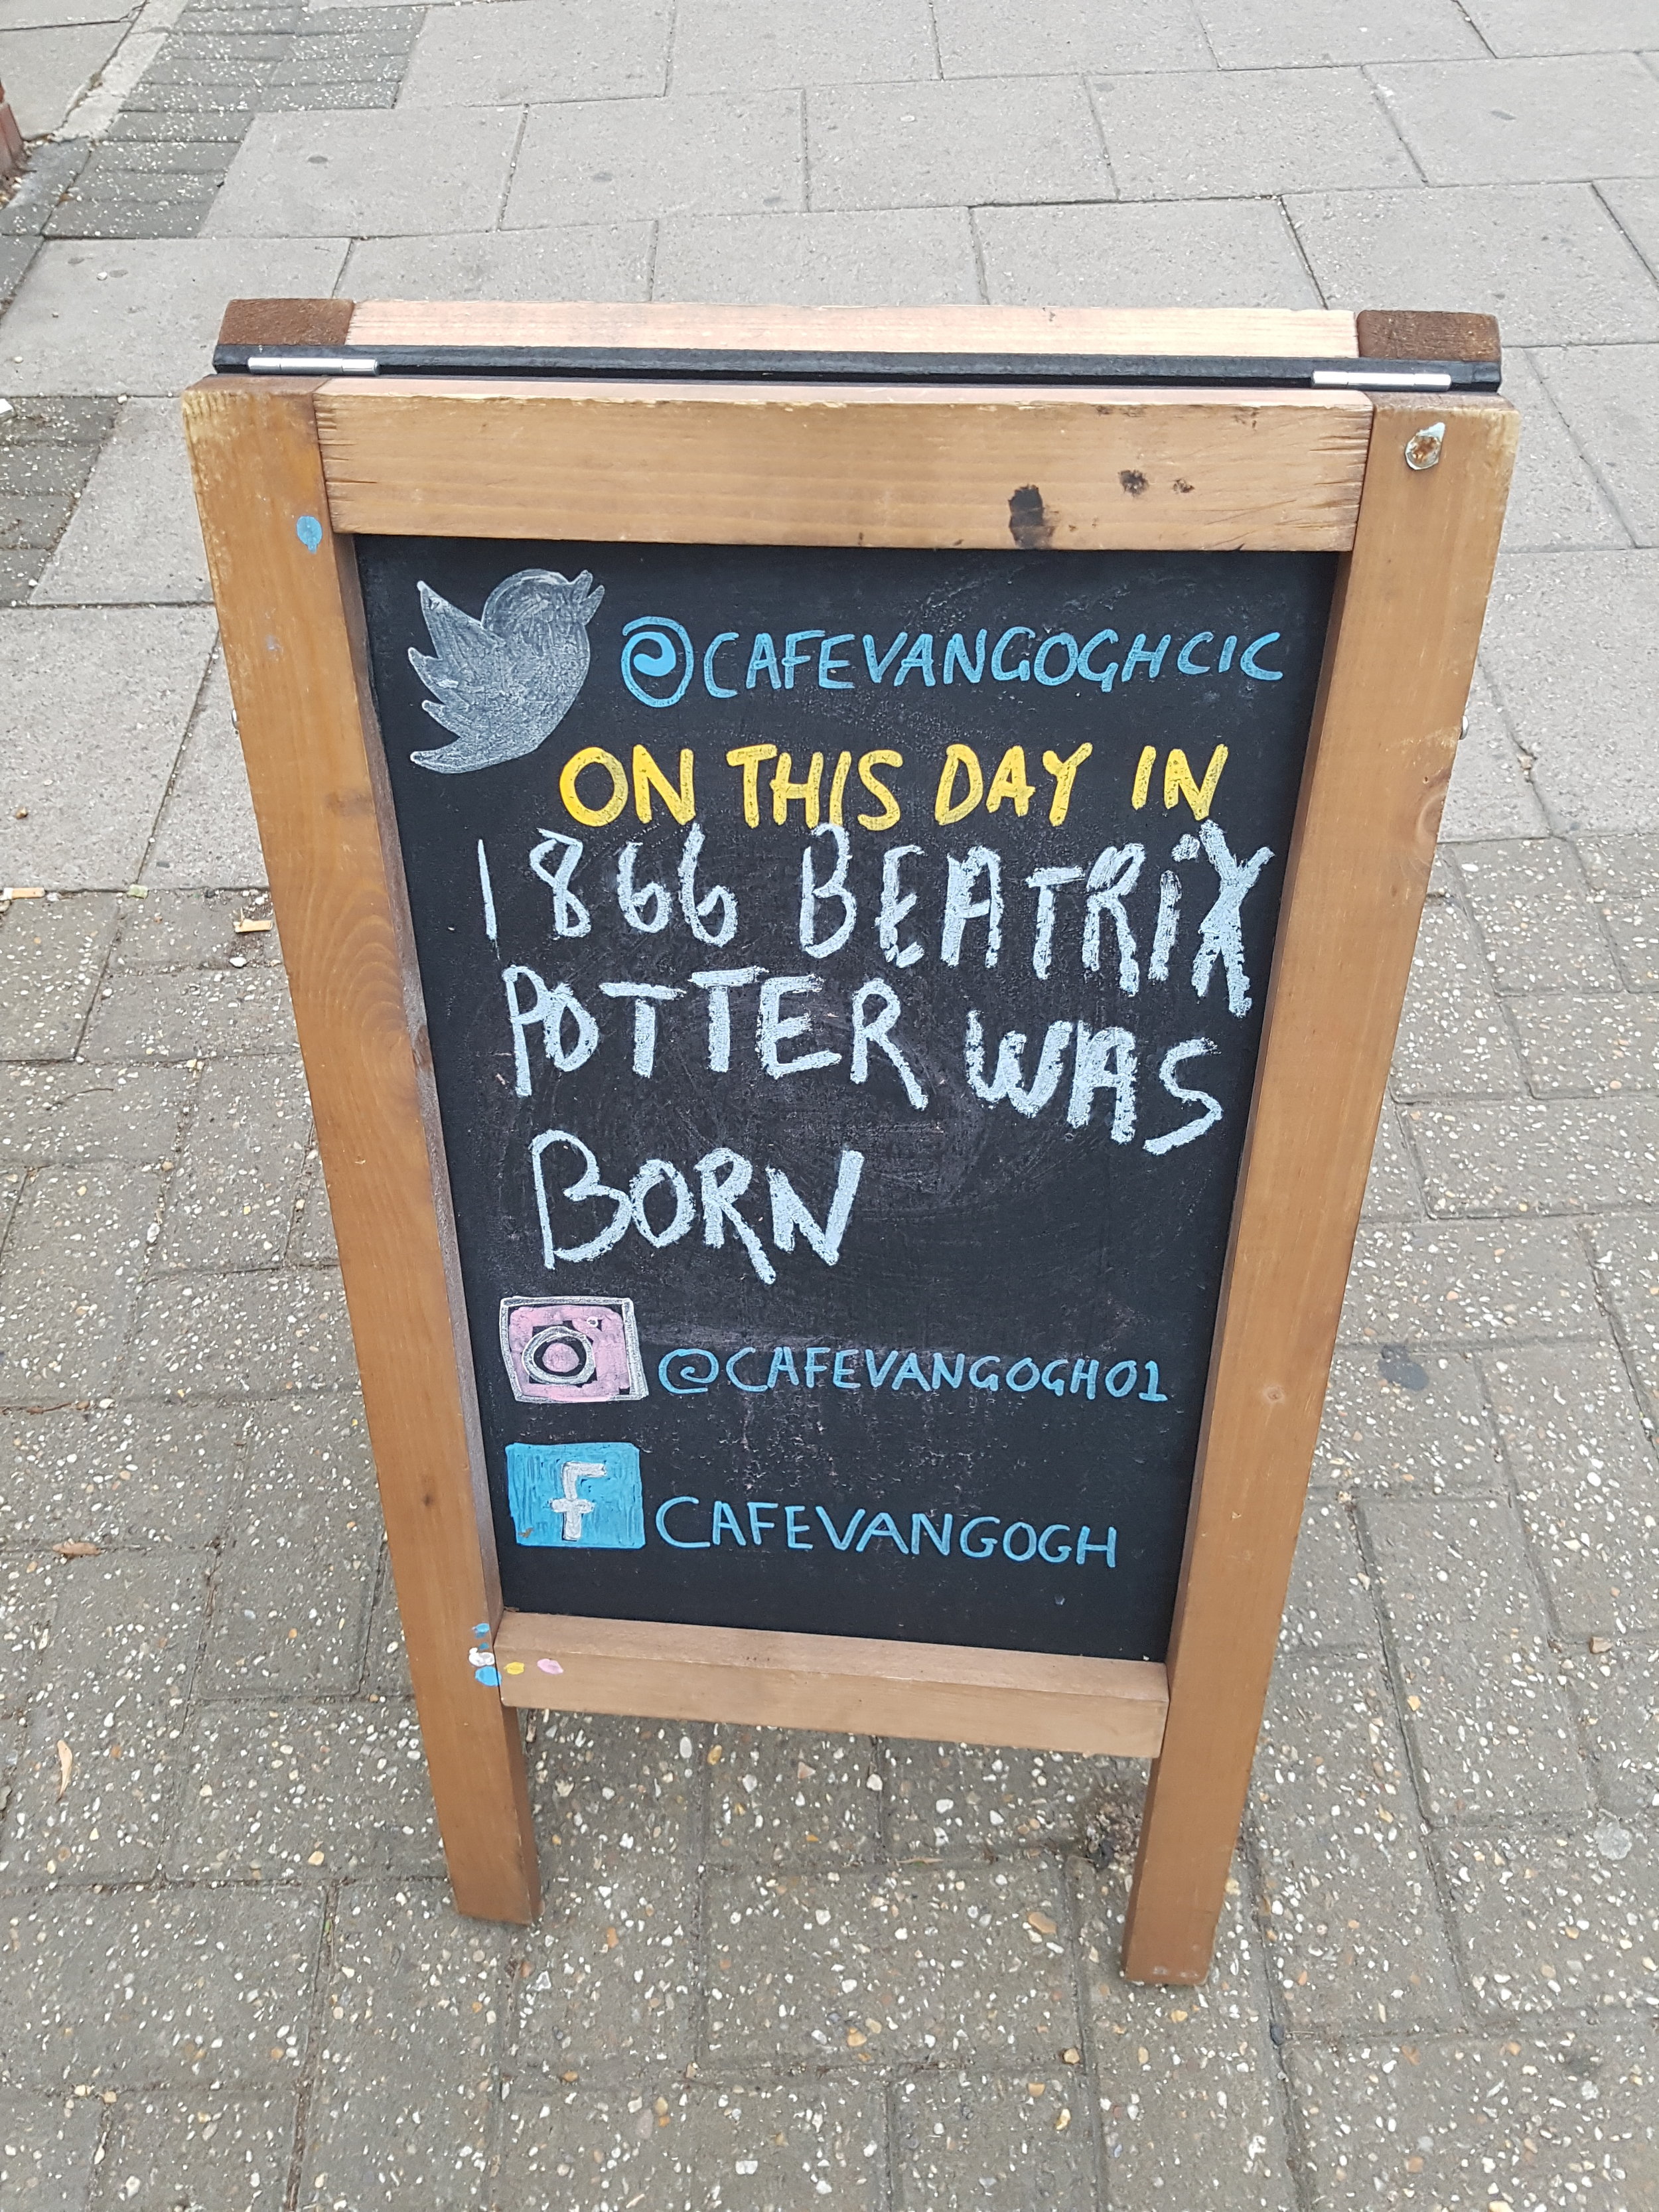 @CAFEVANGOGHCIC
ON THIS DAY IN
1866 BEATRiX
POTTER WAS
BORN
@CAFEVANGOGH01
f CAFEVANGOGH